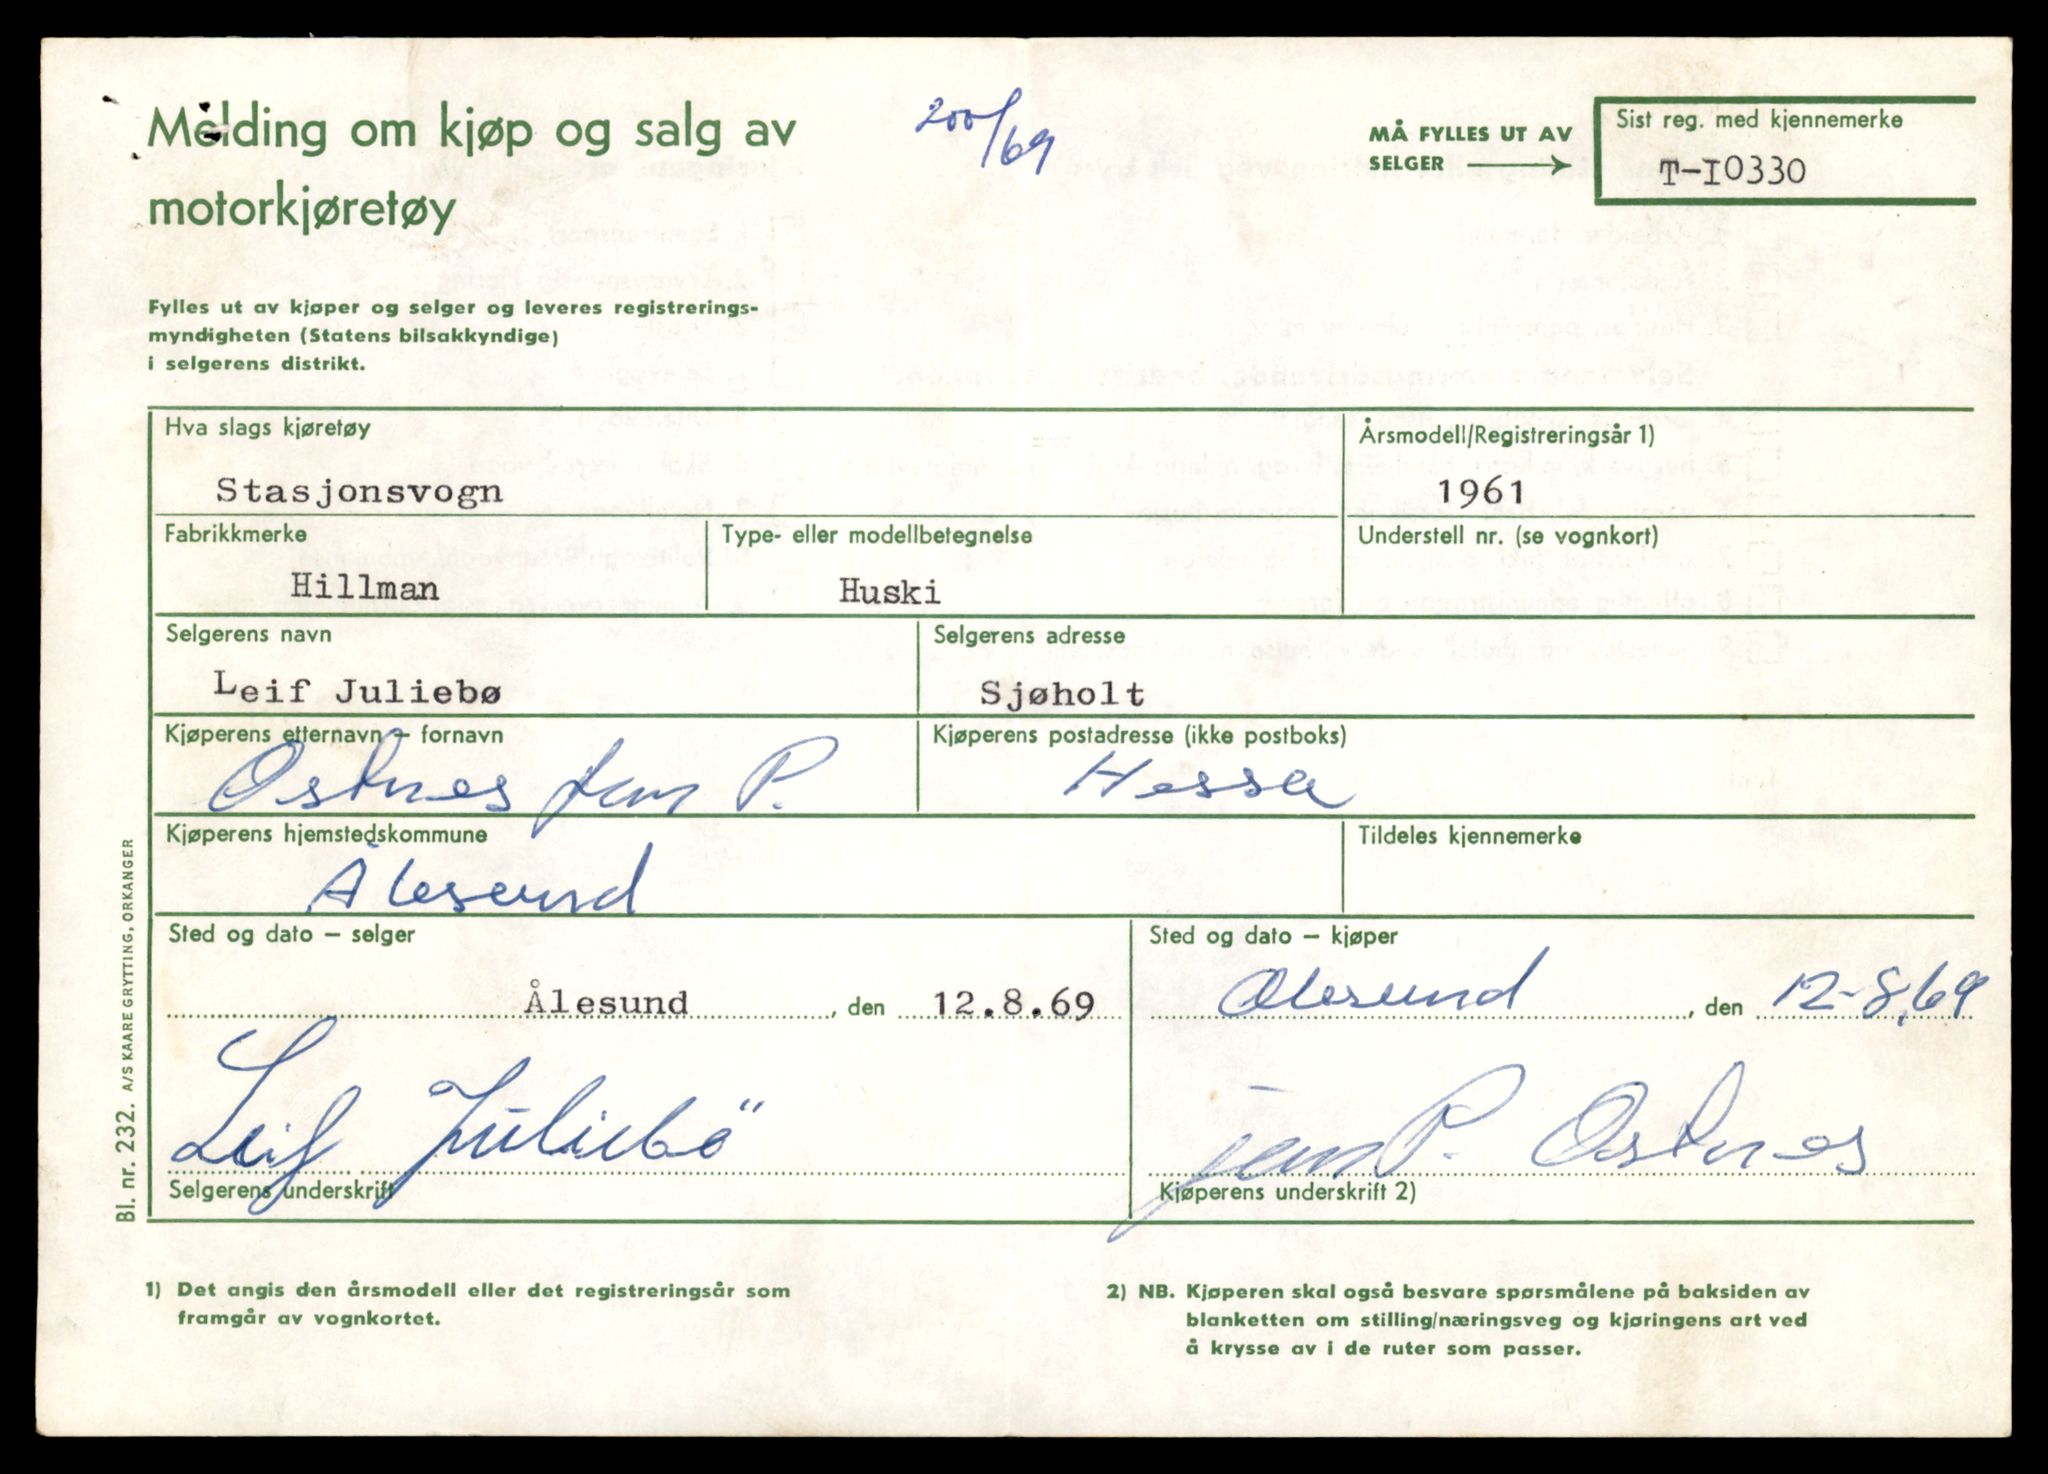 Melding om kjøp og salg av
motorkjøretøy
200/69
MÅ FYLLES UT AV
SELGER
Sist reg. med kjennemerke
T-I0330
Fylles ut av kjøper og selger og leveres registrerings-
myndigheten (Statens bilsakkyndige)
i selgerens distrikt.
Hva slags kjøretøy
Årsmodell/Registreringsår 1)
Stasjonsvogn
1961
Fabrikkmerke
Type- eller modellbetegnelse
Understell nr. (se vognkort)
Hillman
Huski
Selgerens navn
Selgerens adresse
Leif Juliebø
Sjøholt
Kjøperens etternavn – fornavn
Kjøperens postadresse (ikke postboks)
Ostnes Jens P.
Hessa
Kjøperens hjemstedskommune
Tildeles kjennemerke
Ålesund
Sted og dato – selger
Sted og dato – kjøper
Ålesund, den 12.8.69
Ålesund, den 12-8.69
Leif Juliebö
Jens P. Ostnes
Selgerens underskrift
Kjøperens underskrift 2)
1) Det angis den årsmodell eller det registreringsår som
framgår av vognkortet.
2) NB. Kjøperen skal også besvare spørsmålene på baksiden av
blanketten om stilling/næringsveg og kjøringens art ved
å krysse av i de ruter som passer.
Bl. nr. 232. A/S KAARE GRYTTING, ORKANGER